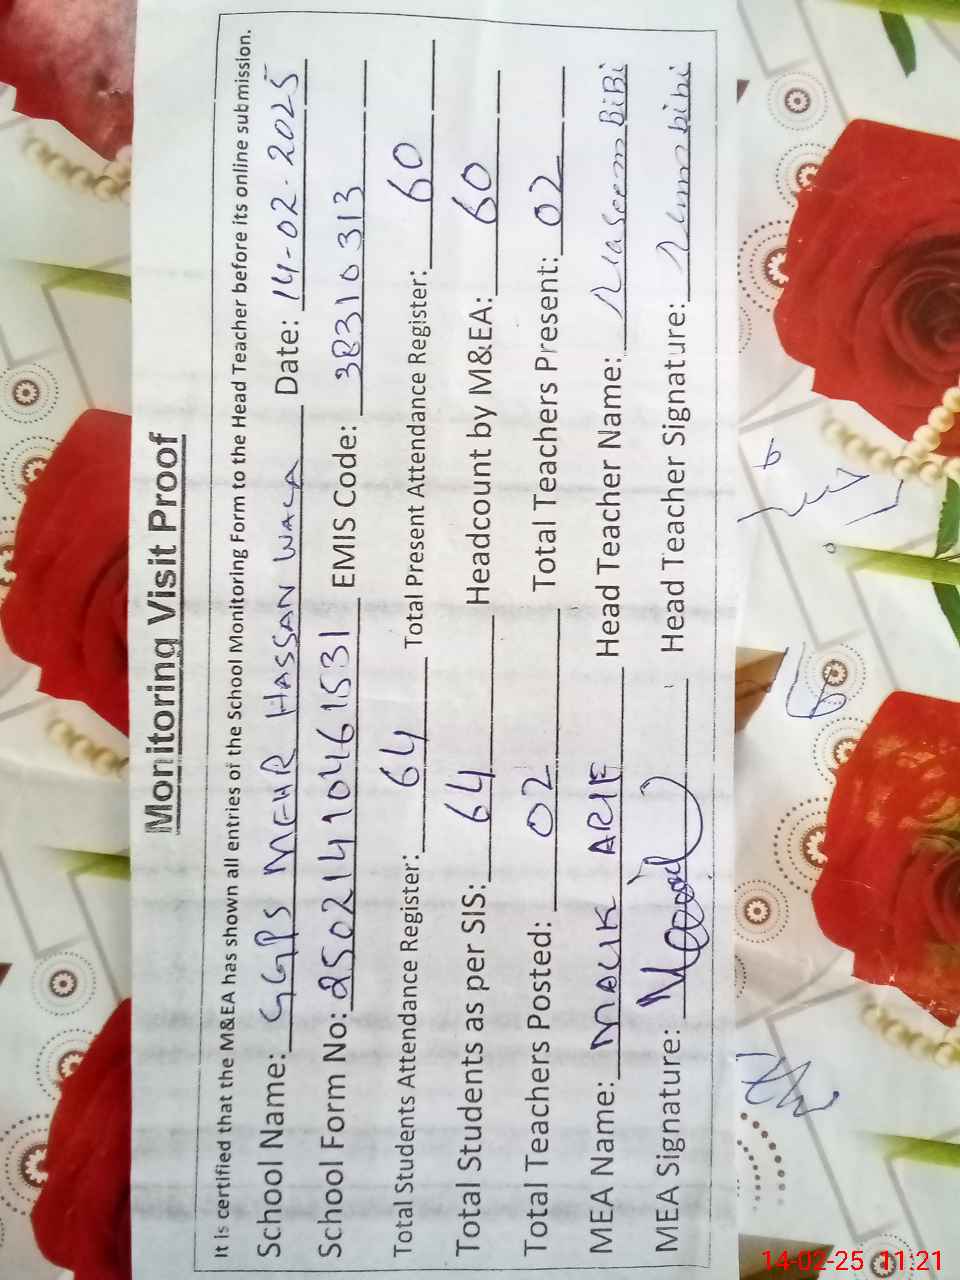 Monitoring Visit Proof
It is certified that the M&EA has shown all entries of the School Monitoring Form to the Head Teacher before its online submission.
School Name: GGPS MEHR HASSAN WALA Date: 14-02-2025
School Form No: 25021410461531 EMIS Code: 38310313
Total Students Attendance Register: 64 Total Present Attendance Register: 60
Total Students as per SIS: 64 Headcount by M&EA: 60
Total Teachers Posted: 02 Total Teachers Present: 02
MEA Name: MALIK ARIF Head Teacher Name: Naseem BiBi
MEA Signature: Head Teacher Signature: bibi
14-02-25 11:21